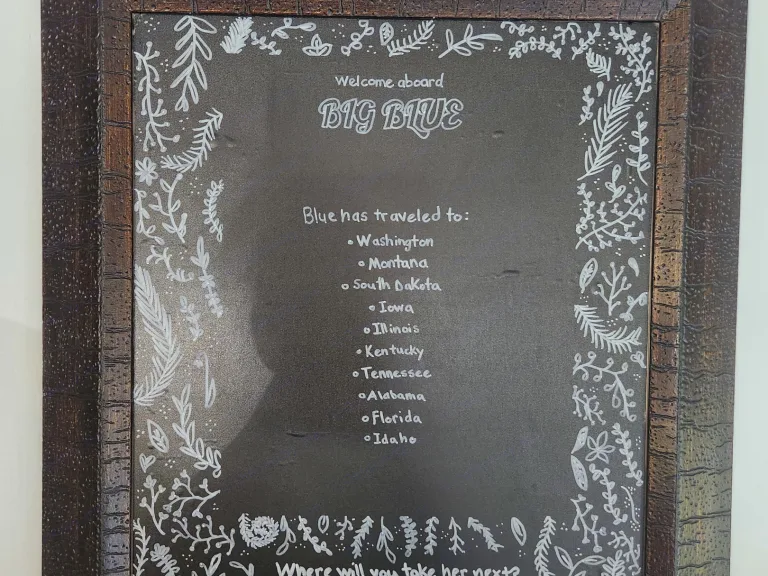 Welcome aboard
BIG BLUE
Blue has traveled to:
• Washington
• Montana
• South Dakota
• Iowa
• Illinois
• Kentucky
• Tennessee
• Alabama
• Florida
• Idaho
Where will you take her next?